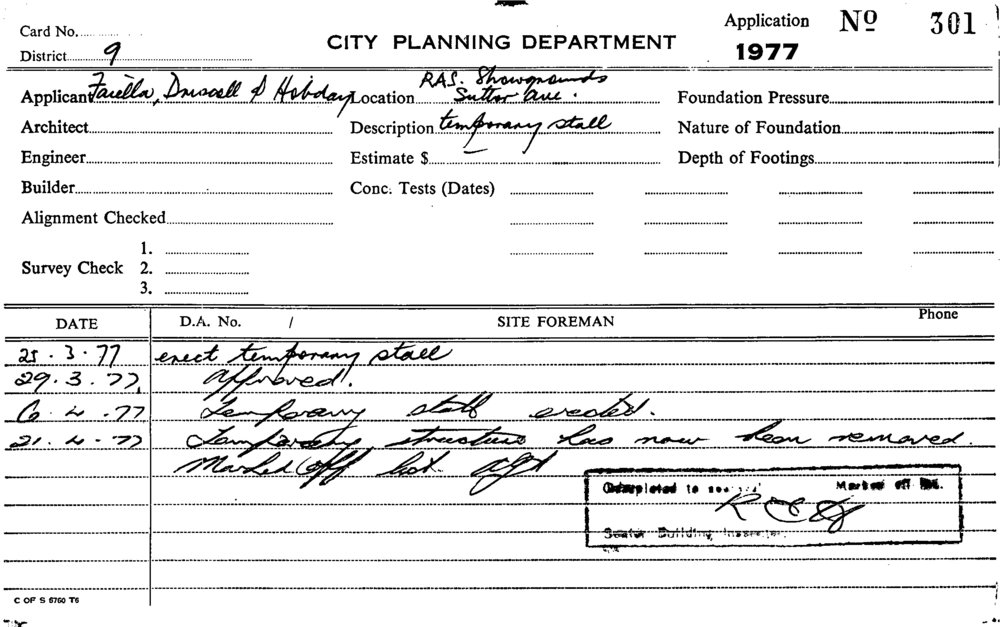 Card No.
District 9
CITY PLANNING DEPARTMENT
Application No 301
1977
Applicant Faiella, Driscoll & Hobday Location RAS. Showgrounds
Suttor Ave. Foundation Pressure
Architect Description temporary stall Nature of Foundation
Engineer Estimate $ — Depth of Footings
Builder Conc. Tests (Dates)
Alignment Checked
1.
Survey Check 2.
3.
DATE D.A. No. / SITE FOREMAN Phone
25.3.77 erect temporary stall
29.3.77. Approved.
6.4.77 Temporary stall erected.
21.4.77 Temporary structure has now been removed.
Marked off list
Completed to Marked off
Senior Building Inspector
C OF S 6760 T6